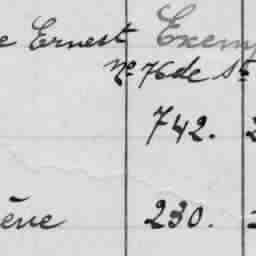 e Ernest Exemp
Nº 76 de St
742. 2
ève 230. 2